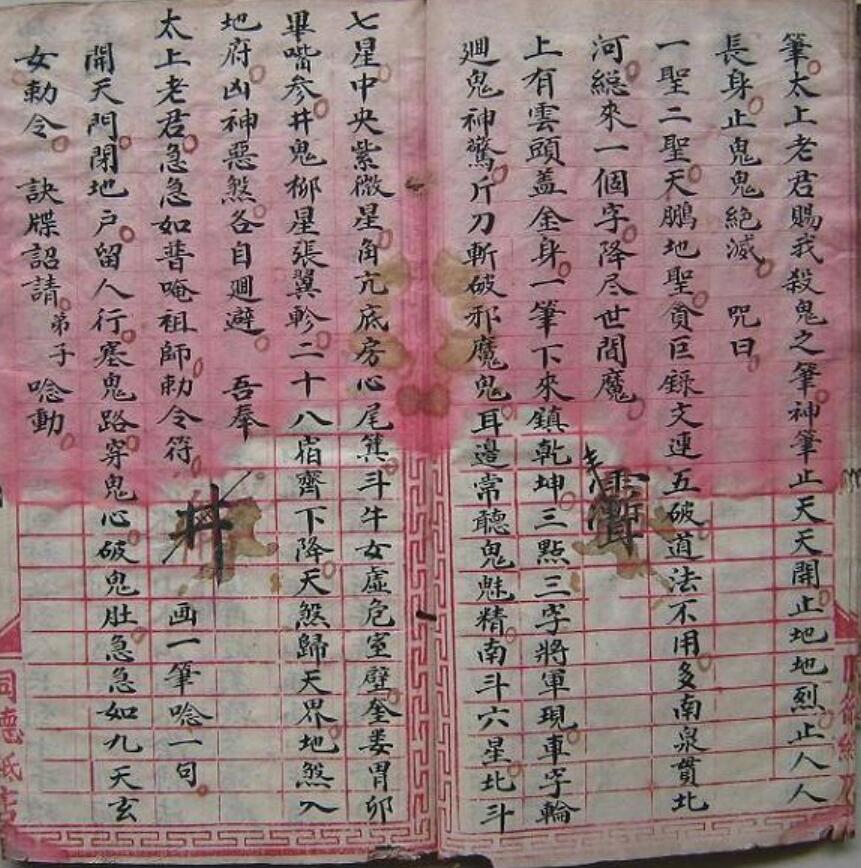 筆太上老君賜我殺鬼之筆神筆止天天開止地地烈止人人
長身止鬼鬼絕滅 咒曰
一聖二聖天鵬地聖貪巨錄文連五破道法不用多南泉貫北
河総來一個字降尽世間魔
上有雲頭盖金身一筆下來鎮乾坤三點三字將軍現車字輪
迴鬼神驚斤刀斬破邪魔鬼耳邊常聽鬼魅精南斗六星北斗
七星中央紫微星角亢底房心尾箕斗牛女虛危室壁奎婁胃卯
畢嘴参井鬼柳星張翼軫二十八宿齊下降天煞歸天界地煞入
地府凶神惡煞各自迴避 吾奉
太上老君急急如普唵祖師勅令符 井 画一筆唸一句
開天門閉地户留人行塞鬼路穿鬼心破鬼肚急急如九天玄
女勅令 訣牒詔請弟子唸動
同德紙店